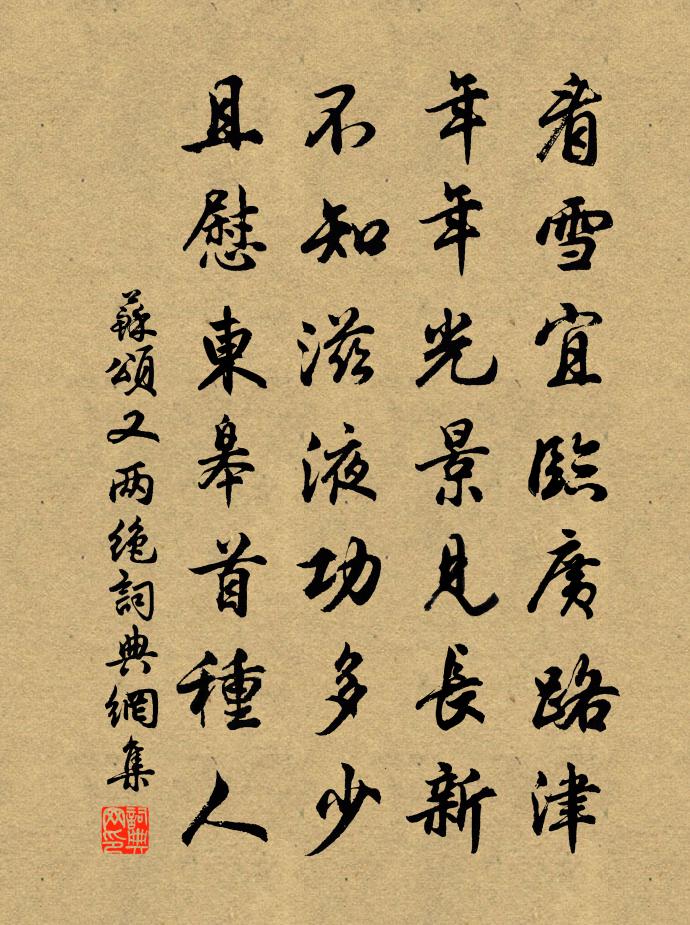 看雪宜臨廣路津
年年光景見長新
不知滋液功多少
且慰東皋首種人
蘇頌又两绝詞典網集
詞典网印